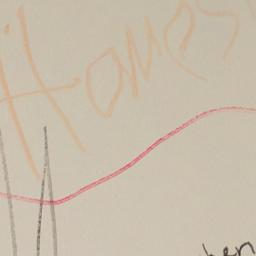 Homes
hen